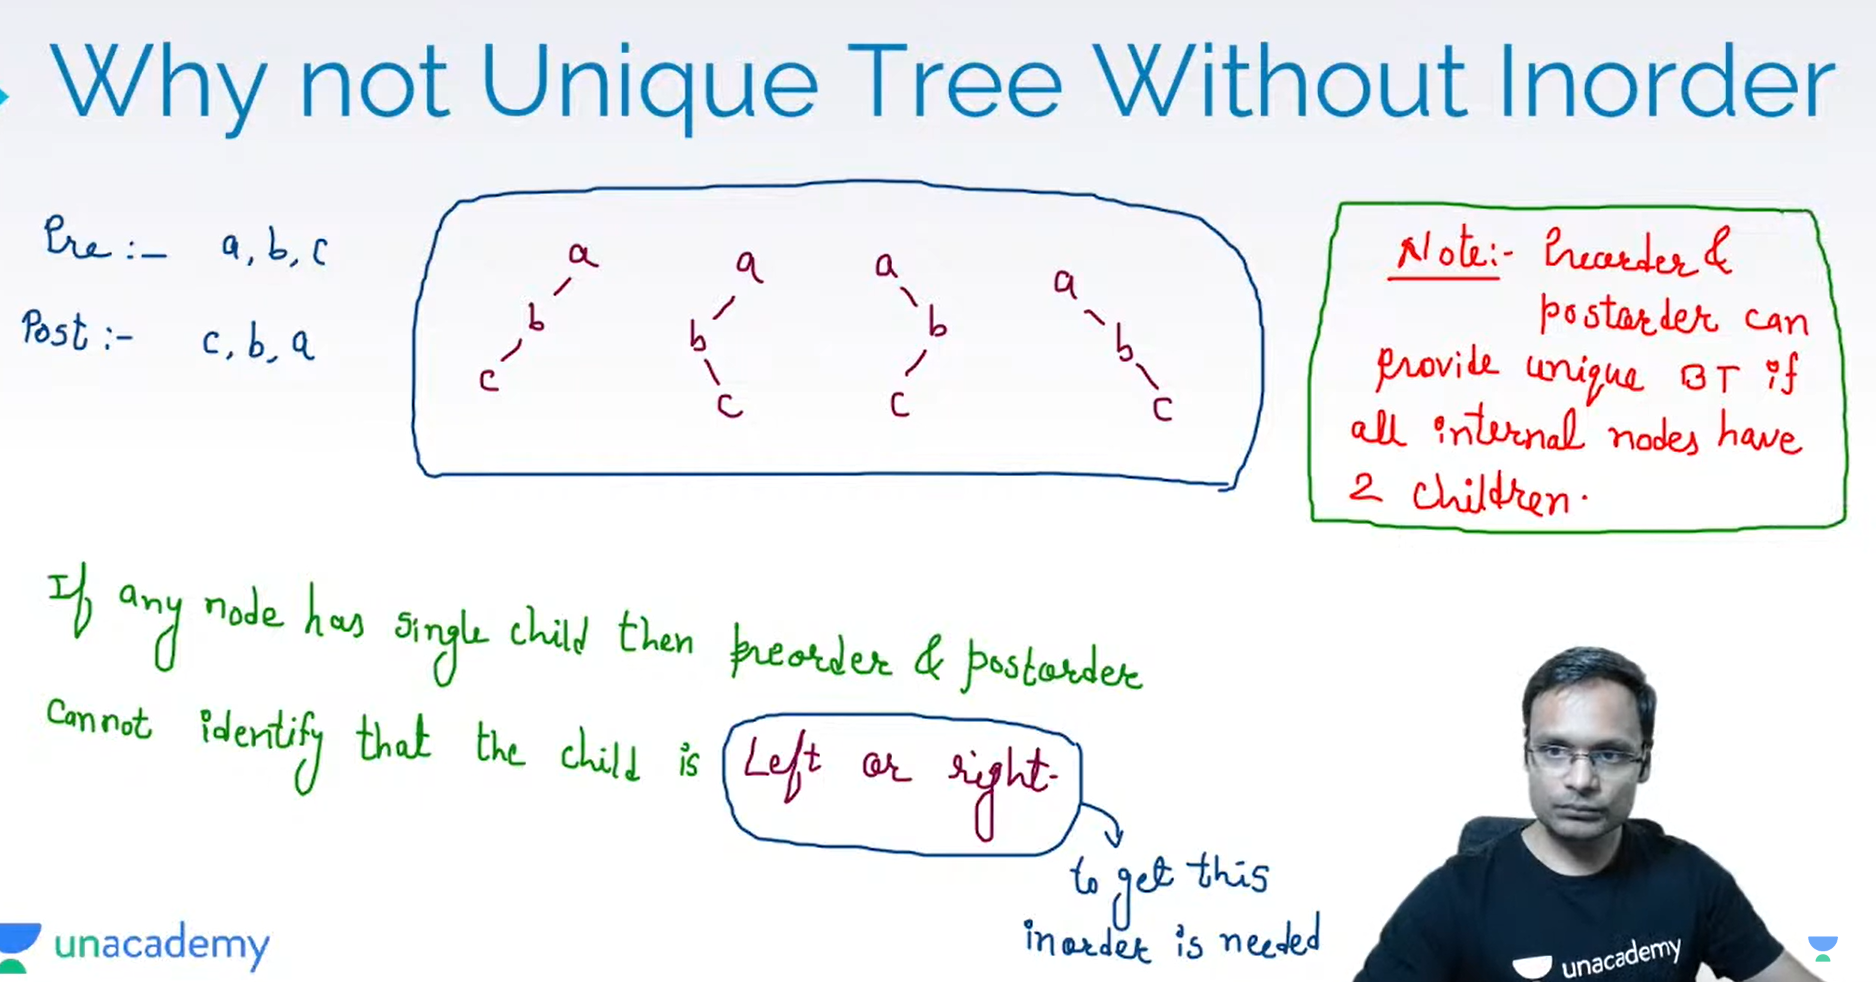 Why not Unique Tree Without Inorder
Pre :- a, b, c
Post :- c, b, a
a
b
c
a
b
c
a
b
c
a
b
c
Note:- Preorder &
postorder can
provide unique BT if
all internal nodes have
2 children.
If any node has single child then preorder & postorder
cannot identify that the child is Left or right.
to get this
inorder is needed
unacademy
unacademy